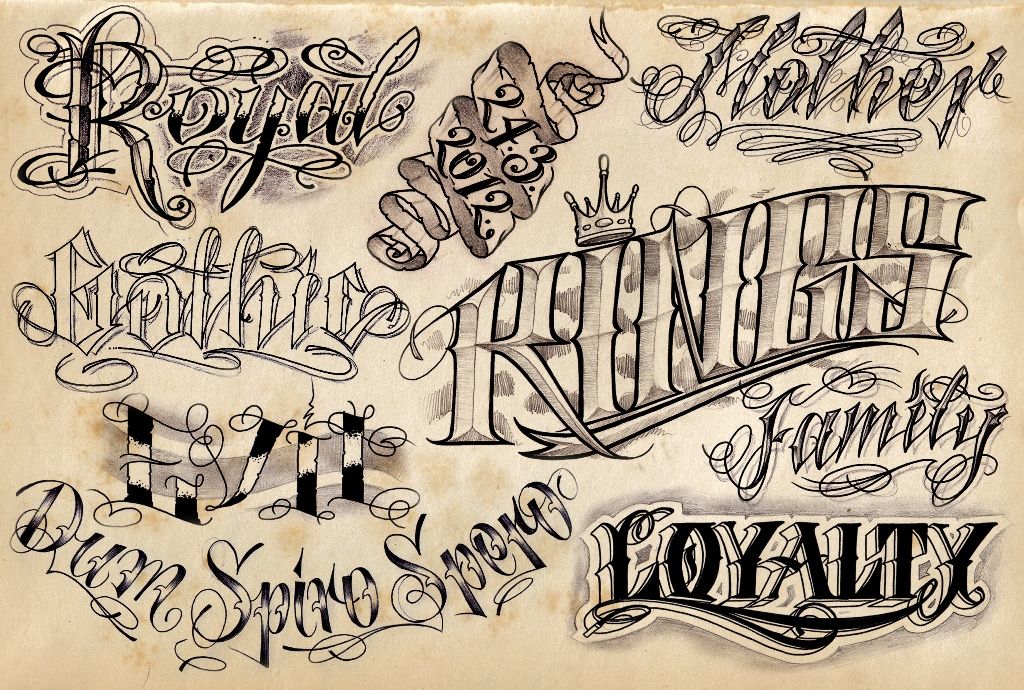 Royal
24.3.
2012.
Mother
Gothic
KINGS
EVIL
Family
Dum Spiro Spero
LOYALTY